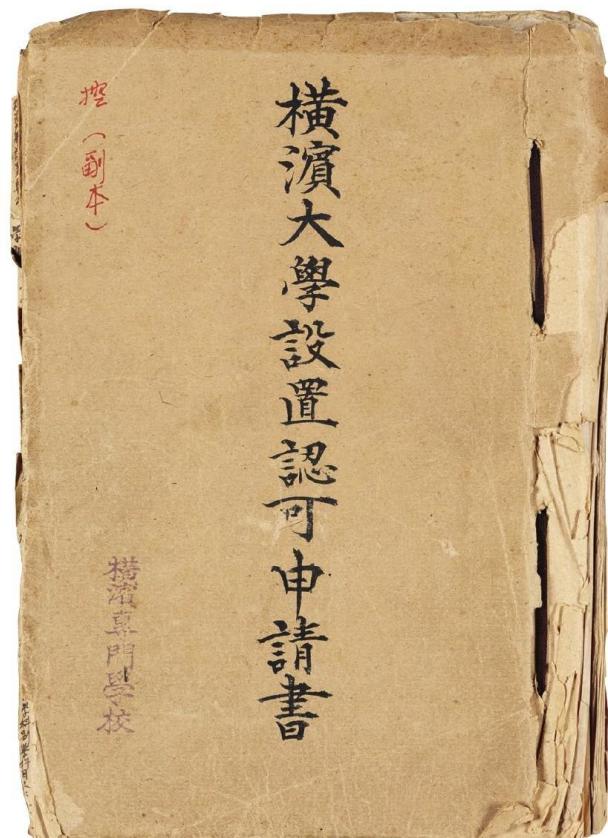 横濱大學設置認可申請書
控（副本）
横濱專門學校